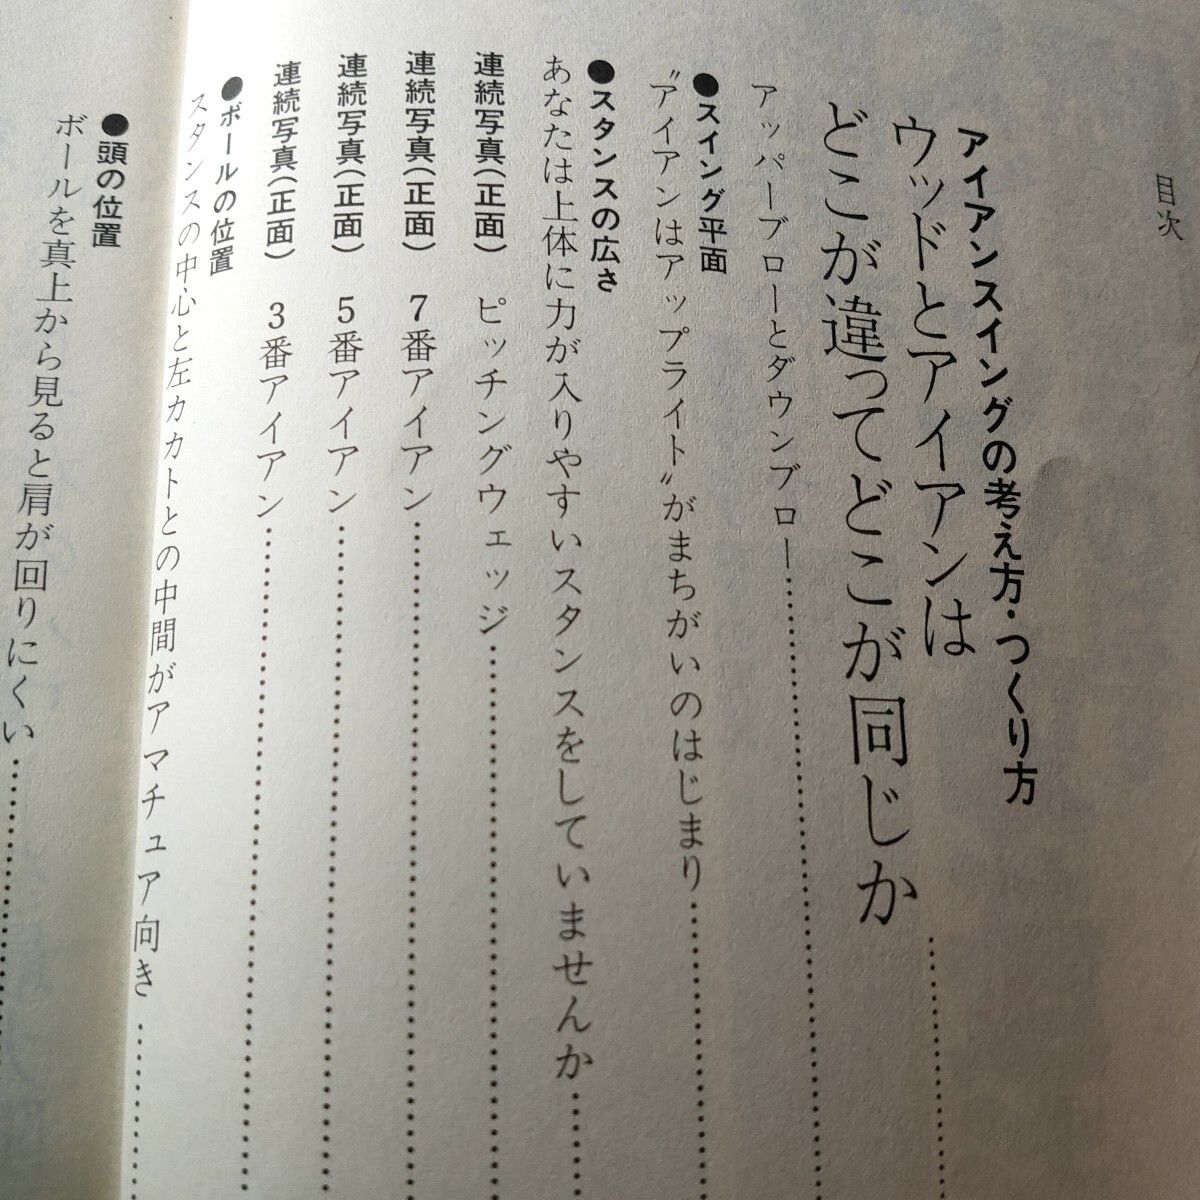 目次
アイアンスイングの考え方・つくり方
ウッドとアイアンは
どこが違ってどこが同じか
アッパーブローとダウンブロー
●スイング平面
〝アイアンはアップライト〟がまちがいのはじまり
●スタンスの広さ
あなたは上体に力が入りやすいスタンスをしていませんか
連続写真(正面) ピッチングウェッジ
連続写真(正面) 7番アイアン
連続写真(正面) 5番アイアン
連続写真(正面) 3番アイアン
●ボールの位置
スタンスの中心と左カカトとの中間がアマチュア向き
●頭の位置
ボールを真上から見ると肩が回りにくい